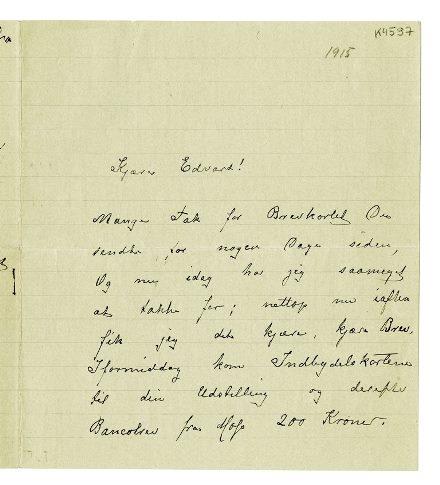 K4597
1915
Kjære Edvard!
Mange Tak for Brevkortet Du
sendte for nogen Dage siden,
Og nu idag har jeg saameget
at takke for; nettop nu iaften
fik jeg det kjære, kjære Brev.
Iformiddag kom Indbydelskortene
til din Udstilling og derefter
Bancobrev fra Moss 200 Kroner.